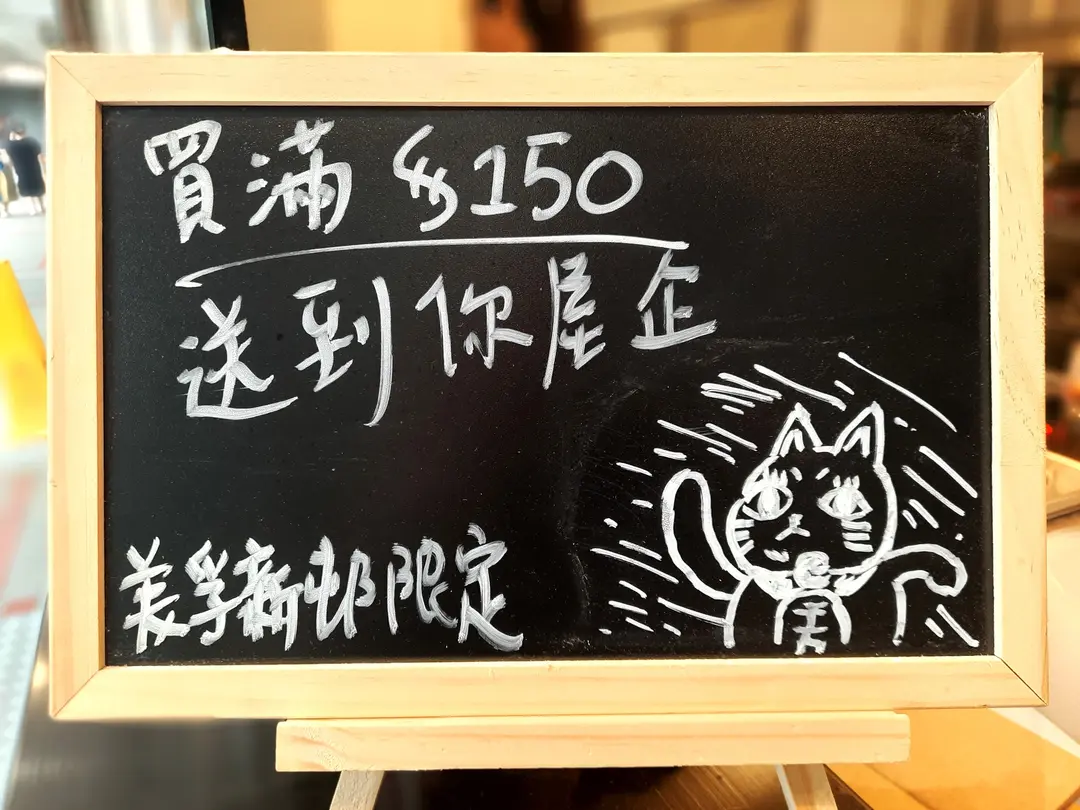 買滿 $150
送到你屋企
美孚新邨限定
美